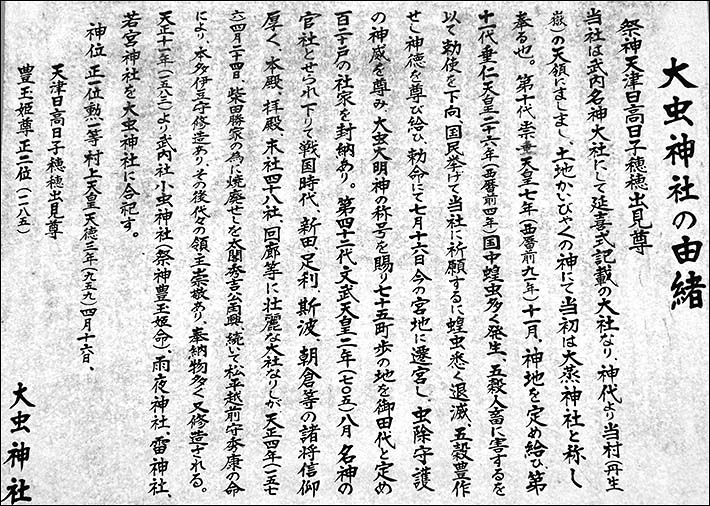 大虫神社の由緒
祭神天津日高日子穂穂出見尊
当社は武内名神大社にして延喜式記載の大社なり、神代より当村(丹生
嶽)の天領にましまし、土地かいびゃくの神にて当初は大蒸神社と称し
奉る也。第十代崇重天皇七年(西暦前九一年)十一月、神地を定め給ひ、第
十代垂仁天皇二十六年(西暦前四年)国中蝗虫多く発生、五穀人畜に害するを
以て勅使を下向、国民挙げて当社に祈願するに蝗虫悉く退滅、五穀豊作
せし神徳を尊び給ひ勅命にて七月十六日今の宮地に遷宮し、虫除守護
の神威を尊み、大虫大明神の称号を賜り七十五町歩の地を御田代と定め
百二十戸の社家を封納あり。第四十二代文武天皇二年(七〇五)八月名神の
官社とせられ下りて戦国時代、新田足利、斯波、朝倉等の諸将信仰
厚く、本殿、拝殿、末社四十八社、回廊等に壮麗な大社なりしが、天正四年(一五七
六)四月二十四日、柴田勝家の為に焼廃せしを太閤秀吉公再興、続いて松平越前守秀康の命
により、本多伊豆守修造あり、その後代々の領主崇敬あり、奉納物多く又修造される。
天正十一年(一五八三)より武内社小虫神社(祭神豊玉姫命)、雨夜神社、雷神社、
若宮神社を大虫神社に合祀す。
神位 正一位勲一等 村上天皇天徳三年(九五九)四月十六日、
天津日高日子穂穂出見尊
豊玉姫尊正二位(一二八五)
大虫神社